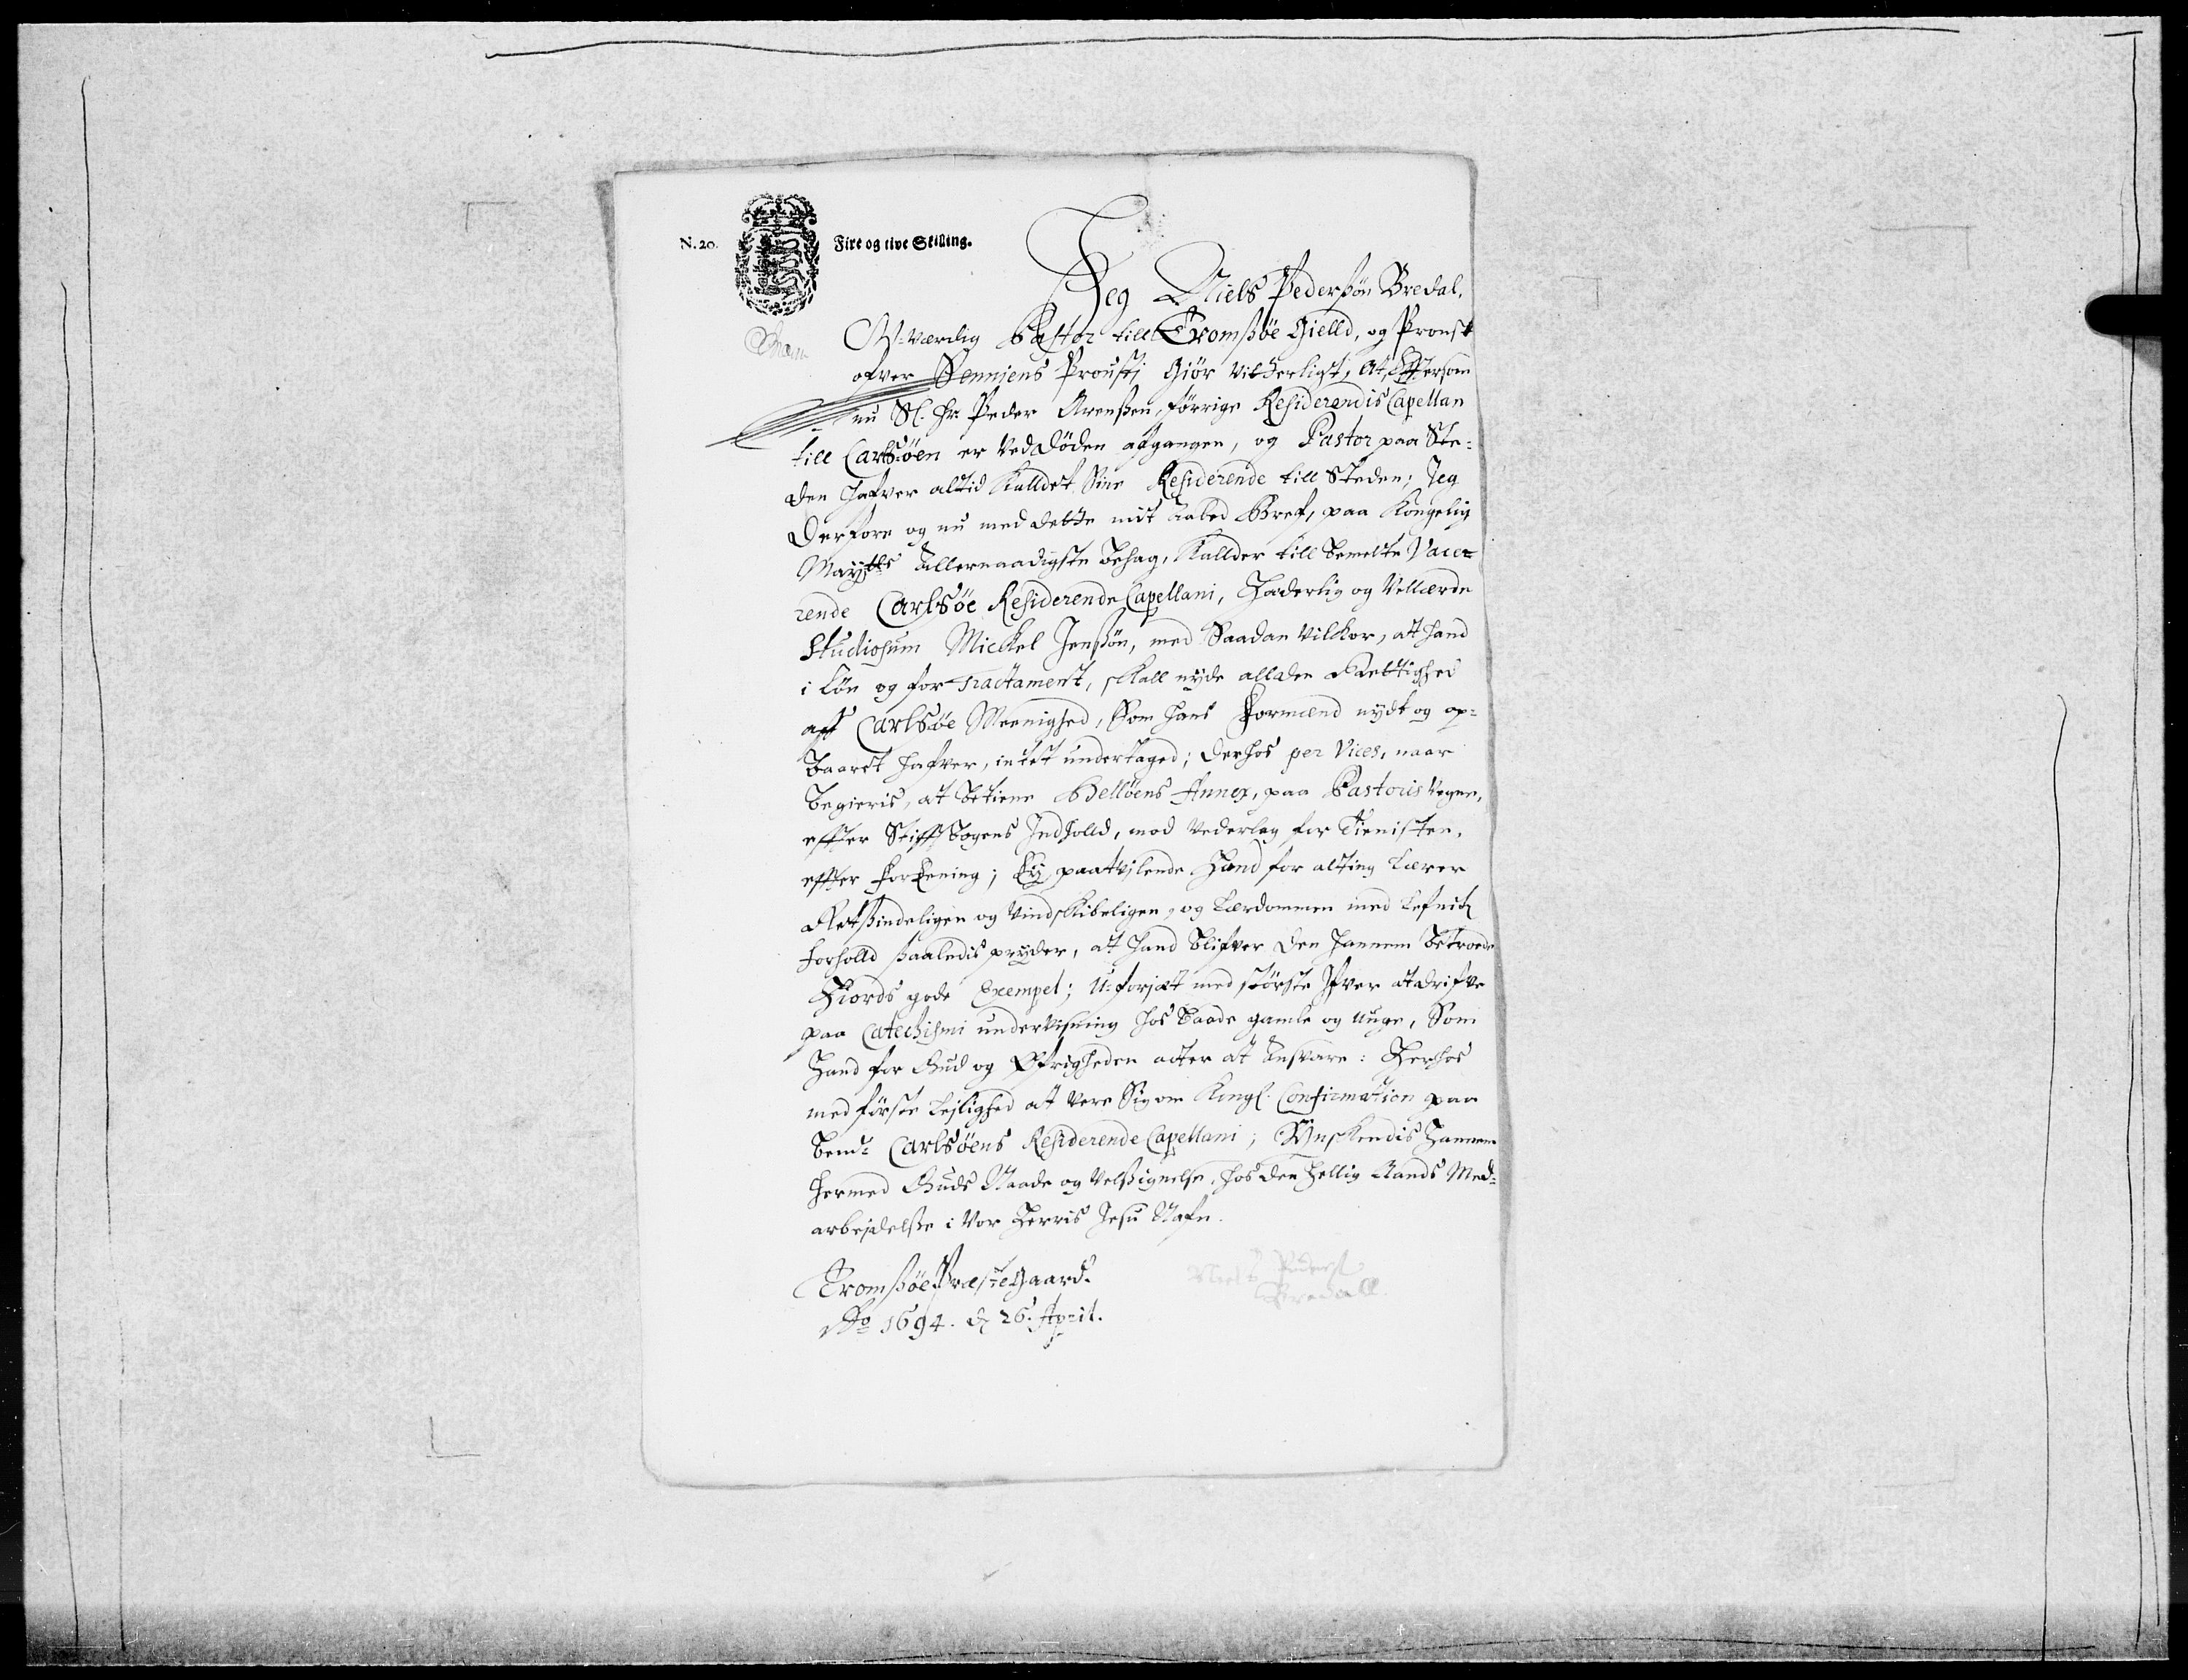 N. 20. Fire og tive Skilling.
Jeg Niels Pederßön Bredal,
U-værdig Pastor till Tromßöe Gielld, og Proust
ofver Senniens Prousti Giör Vitherligt, At, Eftersom
nu Sl. Hr Peder Arenßen, förrige Residerendis Capellan
till Carlsöen er Ved döden afgangen, og Pastor paa Ste-
den hafver altid Kalldet Sine Residerende till Steden; Jeg
Derfore og nu med dette mit Aabed Bref, paa Kongelig
Mayts Allernaadigste Behag, Kallder till bemelte Vace-
rende Carlsöe Residerende Capellani, Hæderlig og Vellærde
Studiosum Mickel Jenßön, med Saadan Vilckor, att hand
i Lön og for Tractament, skall nyde all den Rettighed
aff Carlsöe Meenighed, Som hans Formænd nydt og op-
baaret hafver, intet undertaged; Derhos per Vices, naar
begieris, at betiene Helløens Annex, paa Pastoris Vegne,
effter Stiffts bogens Indholld, mod Vederlag for Tienisten,
effter forEening; Ey paatvilende Hand for alting Lærer
Retsindeligen og Vindskibeligen, og Lærdommen med Lefnitz
forholld saaledis pryder, at hand blifver den hannem betroede
Hiords gode Exempel; U-forsøt med störste Ifver at drifve
paa Catechismi undervisning hos baade gamle og unge, Som
Hand for Gud og Øfrigheden acter at Ansvare: Derhos
med förste Leylighed at Vere Sig om Kongl. Confirmation paa
bemte Carlsöens Residerende Capellani; Ønskendis Hannem
hermed Guds Naade og Velsignelse, hos den Hellig Aands Med-
arbejdelse i Vor Herris Jesu Nafn.
Tromßöe Præste Gaard.
Ao 1694. d. 26. April.
Niels Peders
Bredall.